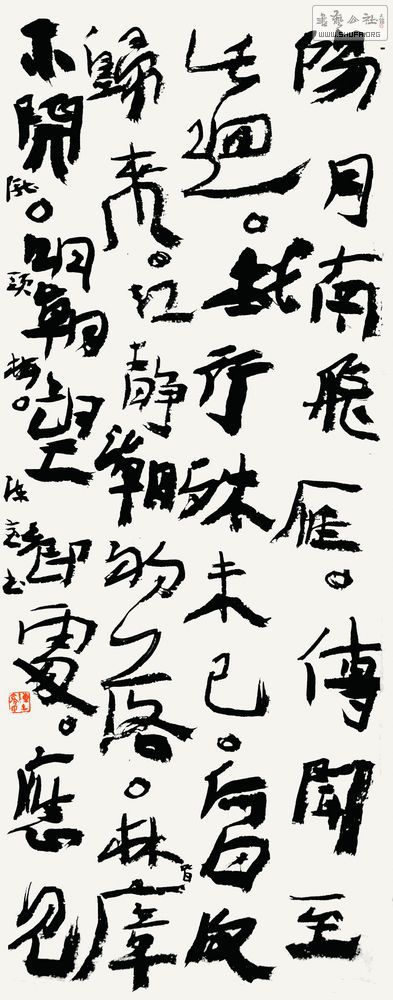 書藝公社
WWW.SHUFA.ORG
陽月南飛雁。傳聞至
此迴。我行殊未已。何日復
歸來。江静潮初落。林昏瘴
不開。明朝望鄉處。應見
隴頭梅。
書